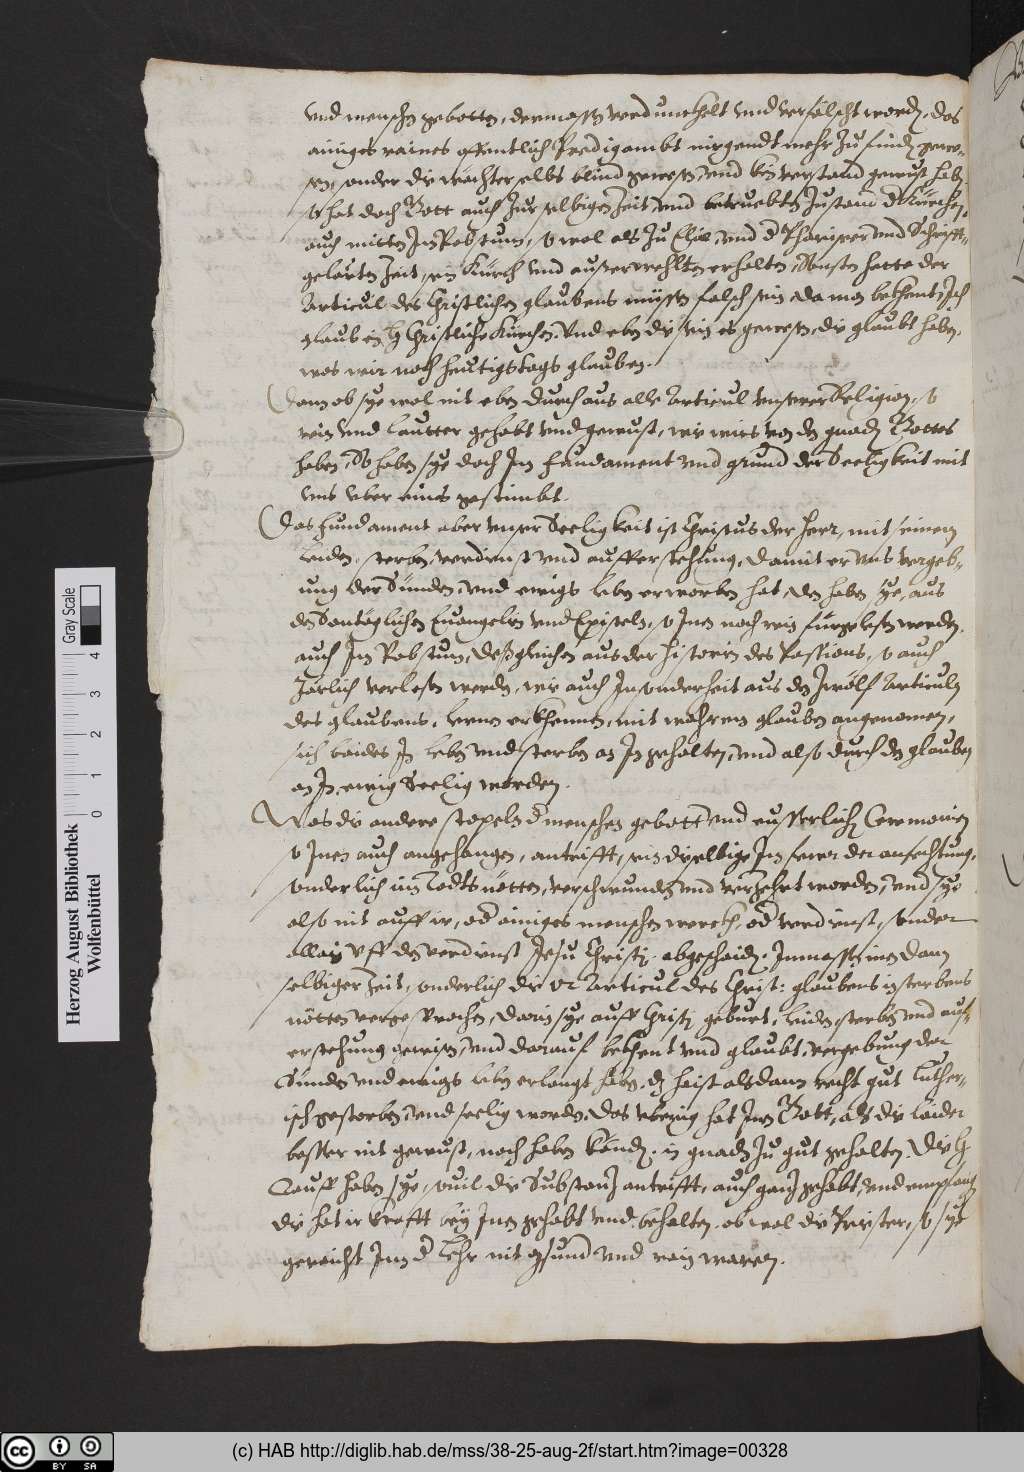 vnd menschen gebotten, dermassen verdunckelt vnd verfälscht worden, das
ainiges raines offentlich Predigambt niergendt mehr zu finden gewe-
sen, sonder die wächter selbs blind gewesen, vnd kein verstand gewust haben
so hat doch Gott auch zur selbigen Zeit, vnd betruebten Zustand der Kürchen,
auch mitten Im Babstum, so wol als zu Eliae, vnd der Phariseer vnd Schrifft-
gelerten Zeit, sein Kürch vnd ausserwehlten erhalten, Sonsten hette der
Articul des Christlichen glaubens müssen falsch sein, da man bekhent, Ich
glaub ein H. Christliche Kürchen, Vnd eben die sein es gewesen, die glaubt haben,
was wir noch heutigstags glauben.
Dann ob sye wol nit eben durchaus alle Articul vnserer Religion, so
rein vnd lautter gehabt vnd gewust, wie wirs von den gnaden Gottes
haben, So haben sye doch Im fundament vnd grund der Seeligkeit mit
vns vber eins gestimbt.
Das fundament aber vnser Seeligkeit ist Christus der Herr, mit seinem
leiden, sterben, verdienst vnd aufferstehung, damit er vns vergeb-
ung der Sünden, vnd ewigs leben erworben hat, den haben sye, aus
den Sontäglichen Euangelien vnd Episteln, so Inen noch rein fürgelesen worden,
auch Im Babstum, desgleichen aus der historien des Passions, so auch
Järlich verlesen worden, wie auch Insonderheit aus den zwölf Articuln
des glaubens, lernen erkhennen, mit wahrem glauben angenomen,
sich baides In leben vnd sterben an In gehalten, vnd also durch den glauben
an In ewig Seelig worden.
Was die andere stopeln der menschen gebott vnd eusserlichen Ceremonien
so Inen auch angehangen, antrifft, sein dieselbige Im feuer der anfechtung,
sonderlich im Todtsnötten, verschwunden vnd verzehrt worden, vnd sye
also nit auff ir, oder ainiges menschen werckh, oder verdienst, sonder
allein vff den verdienst Jesu Christi, abgeschaiden. Inmassen inen dann
selbiger Zeit, sonderlich die  Articul des Christ: glaubens in sterbens
nötten vorgesprochen, darin sye auff Christi geburt, leiden, sterben, vnd auf-
erstehung gewisen, vnd darauf bekhent vnd glaubt, vergebung der
Sünden vnd ewigs leben erlangt haben, das heist alsdann recht gut Luther-
isch gestorben, vnd seelig worden. Das vbrig hat Inen Gott, als die leider
besser nit gewust, noch haben könden, in gnaden zu gut gehalten. Die H.
Tauff haben sye, souil die Substantz antrifft, auch gantz gehabt, vnd empfangen
die hat ir krafft bey Inen gehabt vnd behalten, ob wol die Priester, so sye
geraicht Inn der Lehr nit gsund vnd rein waren.
Herzog August Bibliothek
Wolfenbüttel
0 1 2 3 4
Gray Scale
cc BY SA
(c) HAB http://diglib.hab.de/mss/38-25-aug-2f/start.htm?image=00328